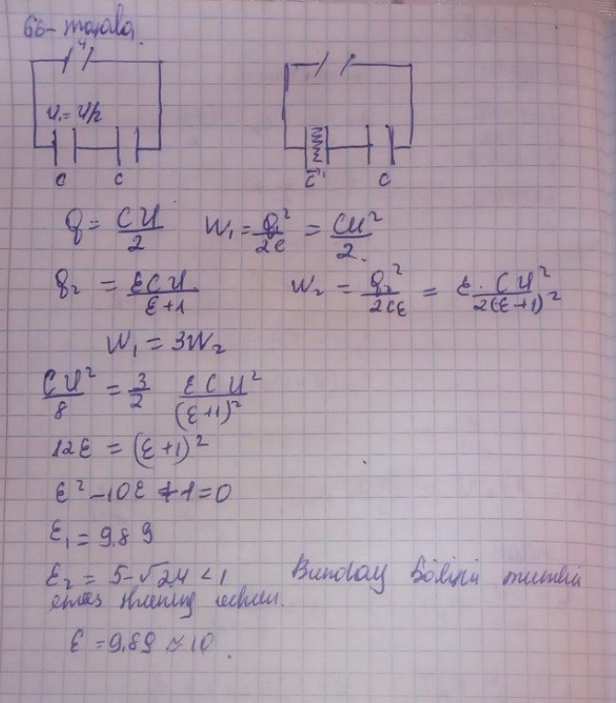 66- masala.
U
U₁ = U/2
C C
C₁ C
q = CU/2 W₁ = q₁²/2C = CU²/2.
q₂ = ECU/E+1 W₂ = q₂²/2CE = E·CU²/2(E+1)²
W₁ = 3W₂
CU²/8 = 3/2 ECU²/(E+1)²
12E = (E+1)²
E² - 10E + 1 = 0
E₁ = 9.89
E₂ = 5-√24 < 1 Bunday bo'lishi mumkin
emas shuning uchun.
E = 9.89 ≈ 10